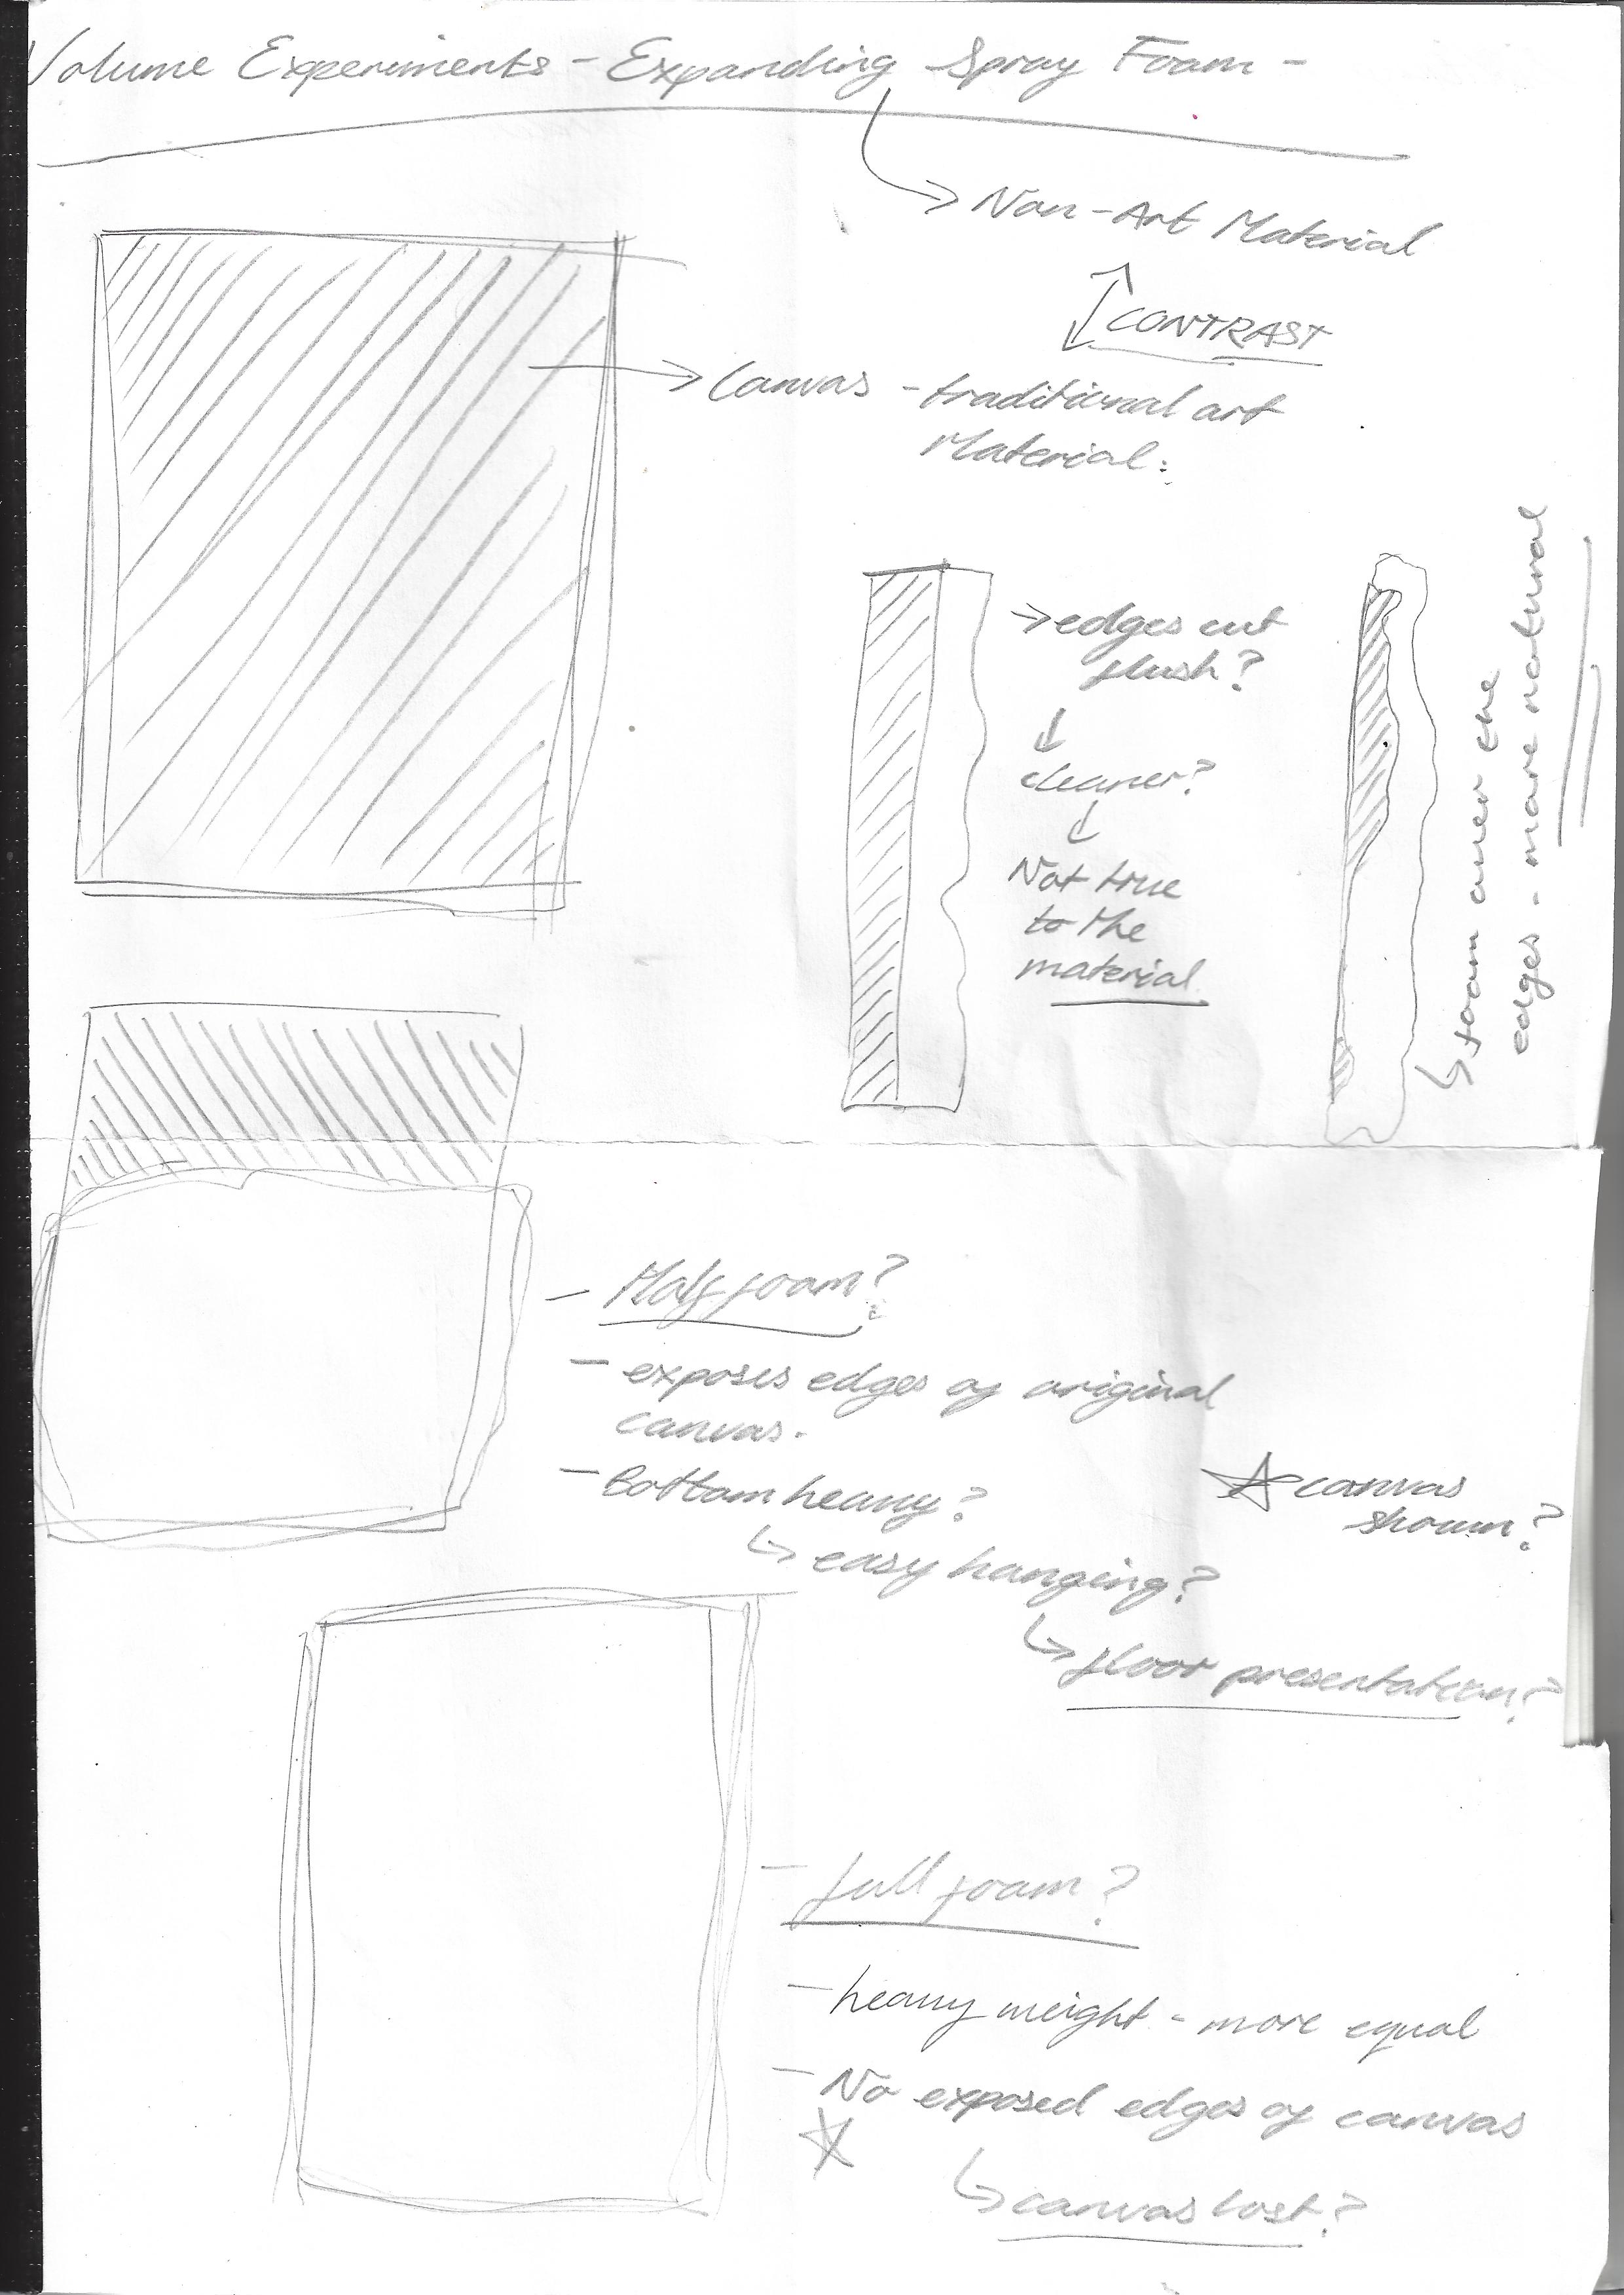 Volume Experiments - Expanding Spray Foam -
Non-Art Material
CONTRAST
Canvas - traditional art
Material.
edges cut
flush?
cleaner?
Not true
to the
material.
foam over the
edges - more natural
- Half foam?
- exposes edges of original
canvas.
- Bottom heavy?
canvas
shown?
easy hanging?
floor presentation?
- full foam?
- heavy weight - more equal
- No exposed edges of canvas
canvas lost?